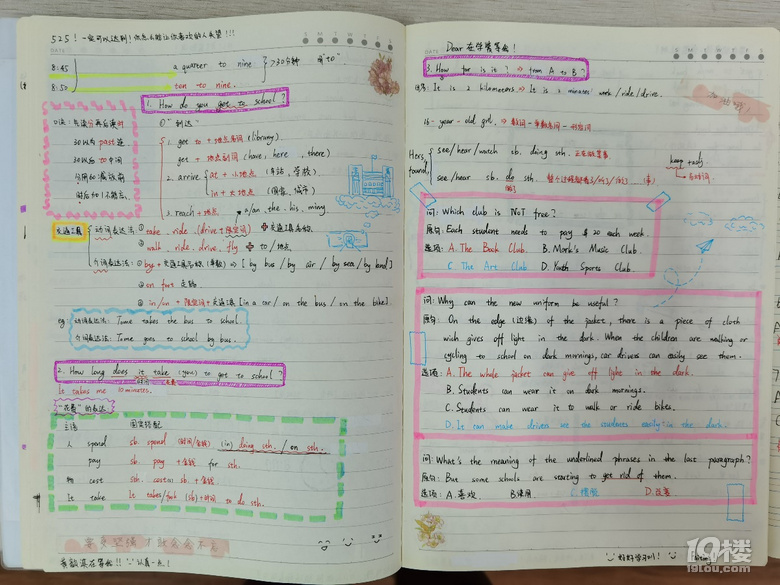 525! 一定可以达到! 你怎么能让你喜欢的人失望!!!
DATE
8:45 a quarter to nine
8:50 ten to nine.
>30分钟 用"to"
1. How do you get to school?
口诀: 先读分再后读时
30以内 past 连
30以后 to 中间
①"到达"
1. get to + 地点名词 (library).
get + 地点副词 (home, here, there)
2. arrive
at + 小地点 (车站, 学校)
in + 大地点 (国家, 城市)
3. reach + 地点
a/an, the, his, ming
交通工具
动词表达法:
① take, ride, drive + 限定词 + 交通工具名称
② walk, ride, drive, fly + to / 地点
介词表达法: ① by + 交通工具名称 (单数) ⇒ [by bus / by air / by sea / by land]
② on foot 走路
③ in/on + 限定词 + 交通工具 [in a car / on the bus / on the bike]
eg: 动词表达法: Tume takes the bus to school.
介词表达法: Tume goes to school by bus.
2. How long does it take (you) to get to school?
时间 花费
It takes me 10 minutes.
"花费"的表达
主语 固定搭配
人 spend sb. spend (时间/金钱) (in) doing sth. / on sth.
pay sb. pay + 金钱 for sth.
物 cost sth. costs sb. + 金钱
It take It takes/took (sb) + 时间 to do sth.
认真一点!
Dear 在学霸等我!
DATE
3. How far is it? ⇒ from A to B?
It is 2 kilometers ⇒ It is 2 minutes' walk / ride / drive.
16-year-old girl. ⇒ 数词-单数名词-形容词
see/hear/watch sb. doing sth. 正在做某事
see/hear sb. do sth.
found
keep + adj.
问: Which club is NOT free?
原句: Each student needs to pay $20 each week.
选项: A. The Book Club. B. Mark's Music Club.
C. The Art Club D. Youth Sports Club.
问: Why can the new uniform be useful?
原句: On the edge (边缘) of the jacket, there is a piece of cloth
wich gives off light in the dark. When the children are walking or
cycling to school on dark mornings, car drivers can easily see them.
选项: A. The whole jacket can give off light in the dark.
B. Students can wear it on dark mornings.
C. Students can wear it to walk or ride bikes.
D. It can make drivers see the students easily in the dark.
问: What's the meaning of the underlined phrases in the last paragraph?
原句: But some schools are starting to get rid of them.
选项: A. 喜欢 B. 采用 C. 增强 D. 改善
好好学习吖!
19楼
19lou.com